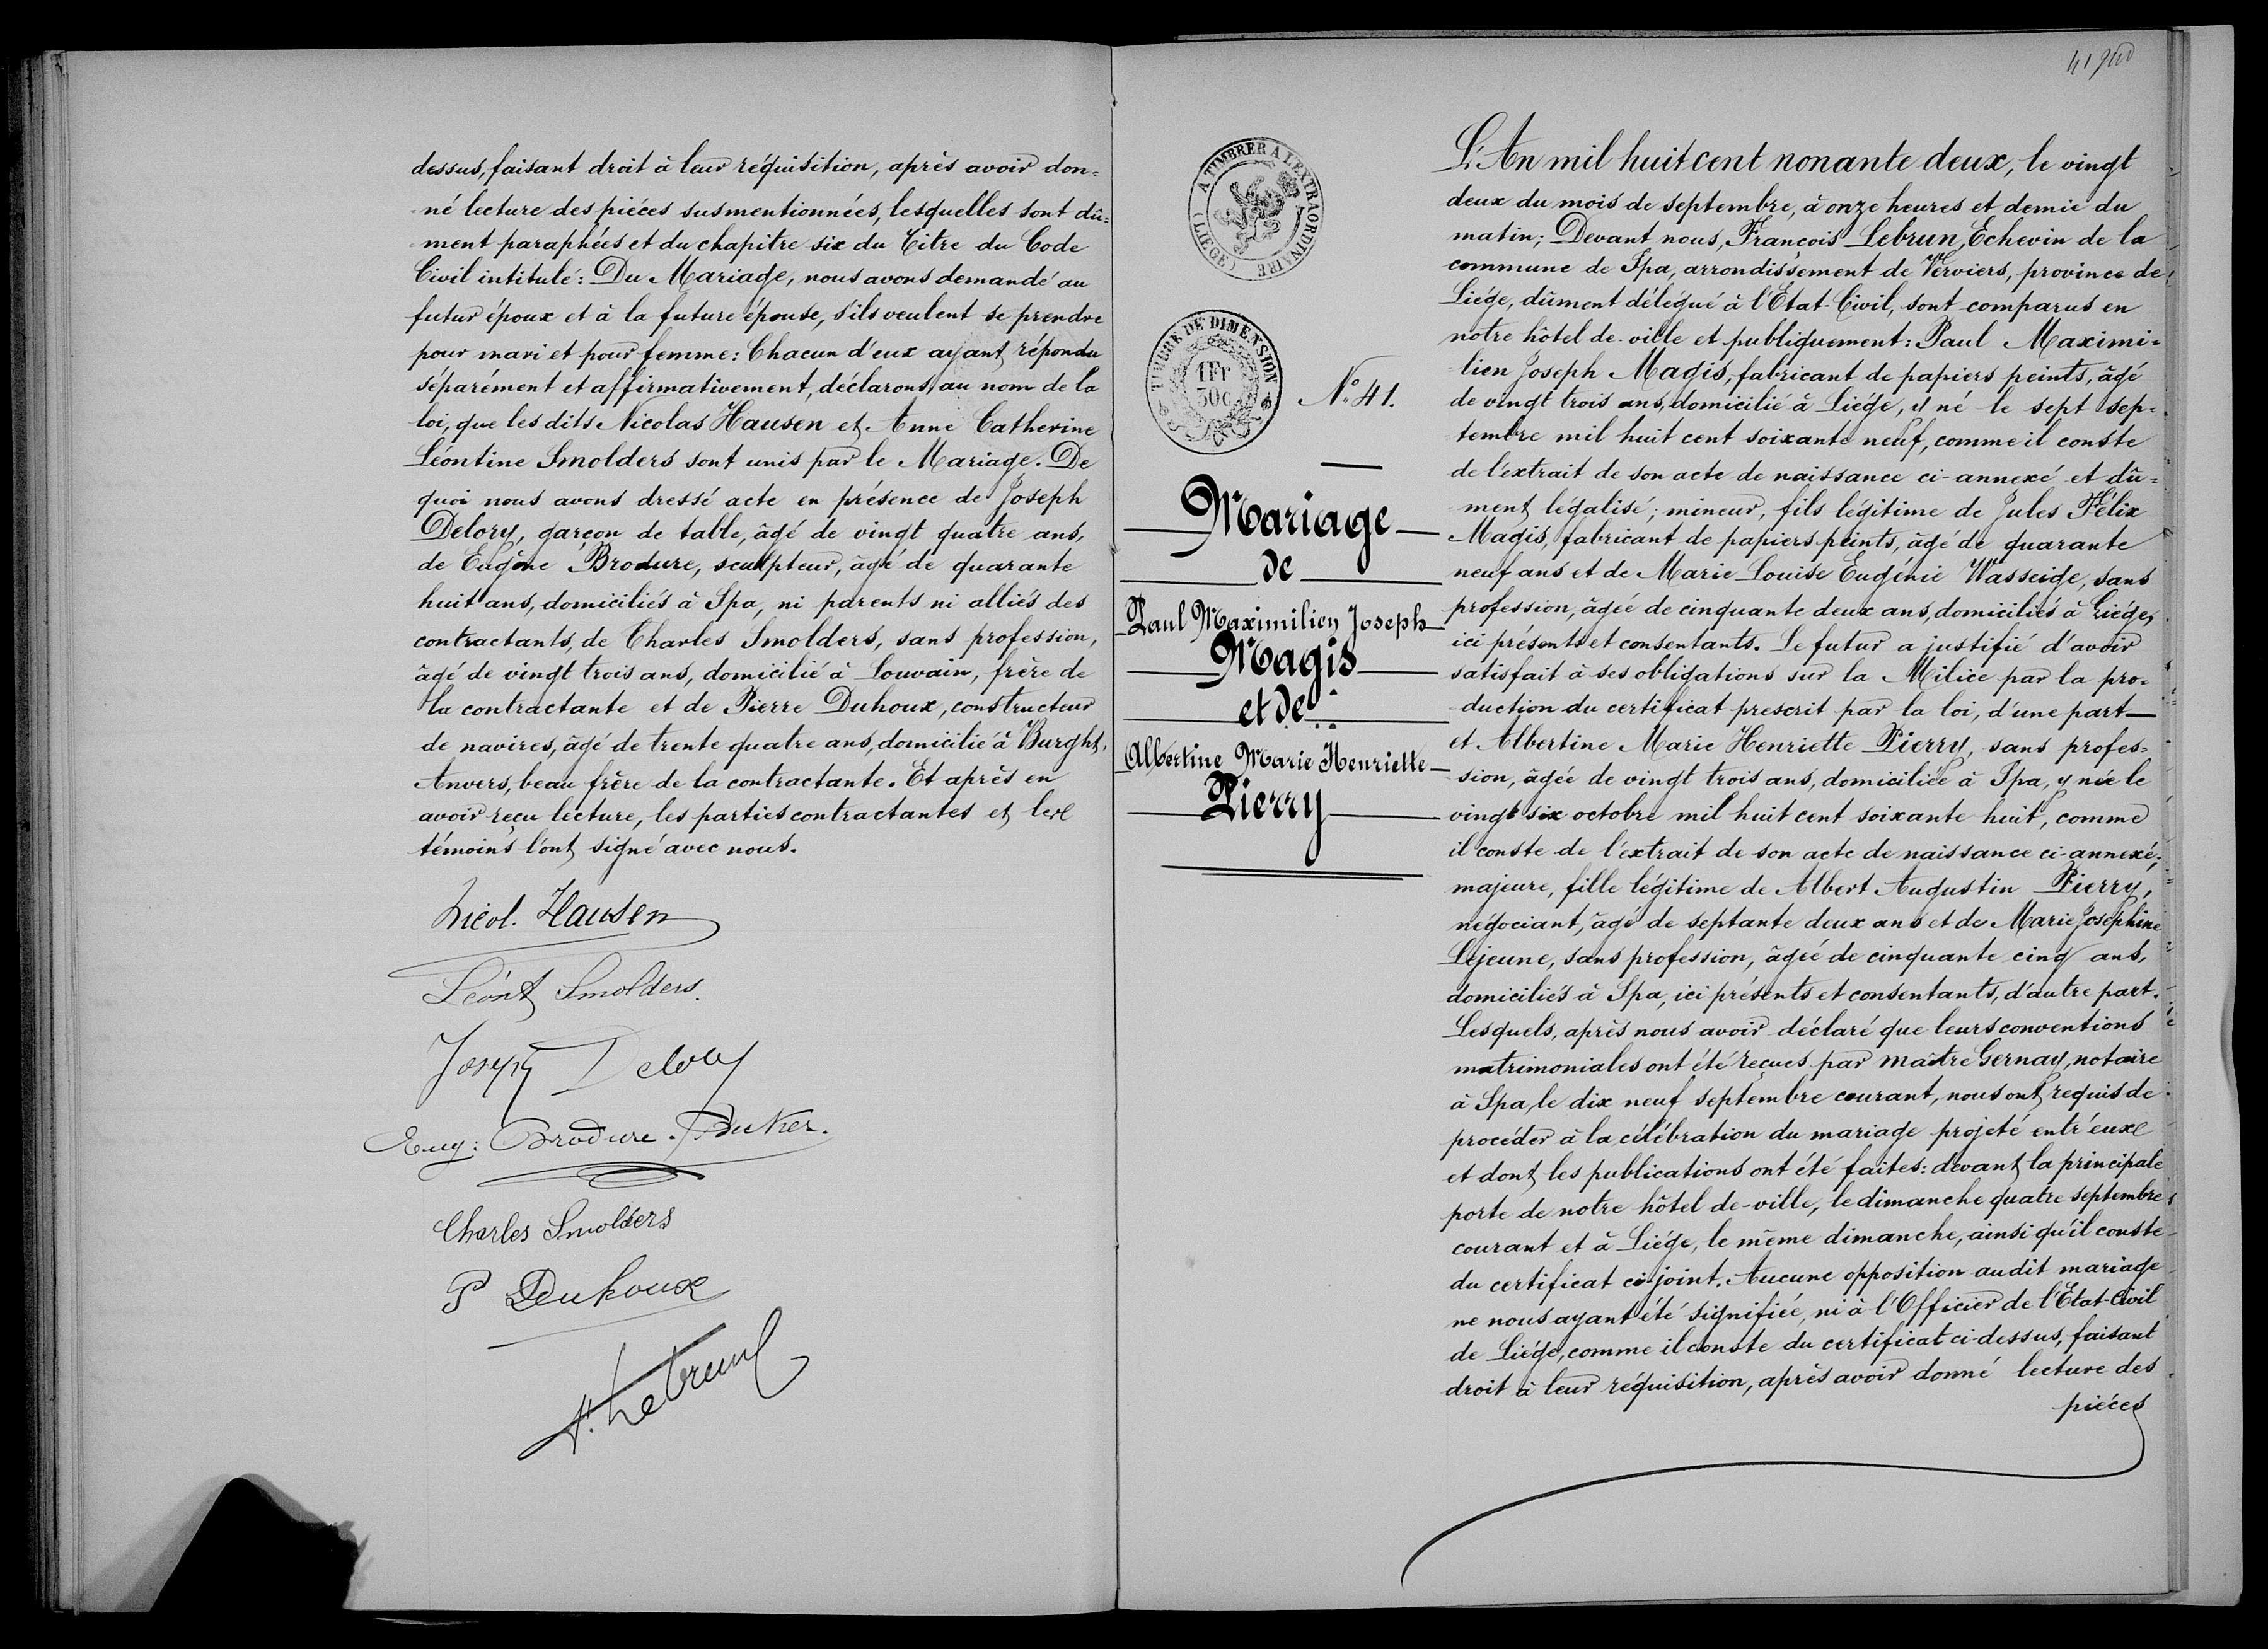 dessus, faisant droit à leur réquisition, après avoir don=
né lecture des pièces susmentionnées, lesquelles sont dû=
ment paraphées et du chapitre six du Titre du Code
Civil intitulé: Du Mariage, nous avons demandé au
futur époux et à la future épouse, s'ils veulent se prendre
pour mari et pour femme: Chacun d'eux ayant répondu
séparément et affirmativement, déclarons, au nom de la
loi, que les dits Nicolas Hausen et Anne Catherine
Léontine Smolders sont unis par le Mariage. De
quoi nous avons dressé acte en présence de Joseph
Delory, garçon de table, âgé de vingt quatre ans,
de Eugène Brodure, sculpteur, âgé de quarante
huit ans, domiciliés à Spa, ni parents ni alliés des
contractants, de Charles Smolders, sans profession,
âgé de vingt trois ans, domicilié à Louvain, frère de
la contractante et de Pierre Duhoux, constructeur
de navires, âgé de trente quatre ans, domicilié à Burght,
Anvers, beau frère de la contractante. Et après en
avoir reçu lecture, les parties contractantes et les
témoins l'ont signé avec nous.
Nicol. Hausen
Léont Smolders.
Joseph Delory
Eug: Brodure.
Charles Smolders
P Duhoux
F. Lebrun
41
A TIMBRER A L'EXTRAORDINAIRE
(LIÉGE)
TIMBRE DE DIMENSION
1Fr
30c
N° 41.
Mariage
de
Paul Maximilien Joseph
Magis
et de
Albertine Marie Henriette
Pierry
L'An mil huit cent nonante deux, le vingt
deux du mois de septembre, à onze heures et demie du
matin; Devant nous, François Lebrun, Echevin de la
commune de Spa, arrondissement de Verviers, province de
Liége, dûment délégué à l'Etat-Civil, sont comparus en
notre hôtel de-ville et publiquement: Paul Maximi=
lien Joseph Magis, fabricant de papiers peints, âgé
de vingt trois ans, domicilié à Liége, y né le sept sep=
tembre mil huit cent soixante neuf, comme il conste
de l'extrait de son acte de naissance ci-annexé et dû=
ment légalisé; mineur, fils légitime de Jules Félix
Magis, fabricant de papiers peints, âgé de quarante
neuf ans et de Marie Louise Eugénie Wasseige, sans
profession, âgée de cinquante deux ans, domiciliés à Liége,
ici présents et consentants. Le futur a justifié d'avoir
satisfait à ses obligations sur la Milice par la pro=
duction du certificat prescrit par la loi, d'une part—
et Albertine Marie Henriette Pierry, sans profes=
sion, âgée de vingt trois ans, domiciliée à Spa, y née le
vingt six octobre mil huit cent soixante huit, comme
il conste de l'extrait de son acte de naissance ci-annexé;
majeure, fille légitime de Albert Augustin Pierry,
négociant, âgé de septante deux ans et de Marie Josephine
Lejeune, sans profession, âgée de cinquante cinq ans,
domiciliés à Spa, ici présents et consentants, d'autre part.
Lesquels, après nous avoir déclaré que leurs conventions
matrimoniales ont été reçues par maître Gernay, notaire
à Spa, le dix neuf septembre courant, nous ont requis de
procéder à la célébration du mariage projeté entr'eux
et dont les publications ont été faites: devant la principale
porte de notre hôtel de-ville, le dimanche quatre septembre
courant et à Liége, le même dimanche, ainsi qu'il conste
du certificat ci-joint. Aucune opposition audit mariage
ne nous ayant été signifiée, ni à l'Officier de l'Etat-Civil
de Liége, comme il conste du certificat ci-dessus, faisant
droit à leur réquisition, après avoir donné lecture des
pièces